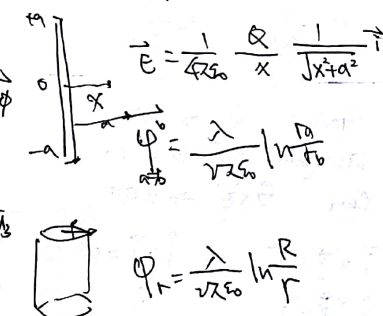 +a
0
-a
x
a
b
$\vec{E} = \frac{1}{4\pi\varepsilon_0} \frac{Q}{x} \frac{1}{\sqrt{x^2+a^2}} \vec{i}$
$\varphi_{a \to b} = \frac{\lambda}{2\pi\varepsilon_0} \ln \frac{r_a}{r_b}$
$\varphi_r = \frac{\lambda}{2\pi\varepsilon_0} \ln \frac{R}{r}$